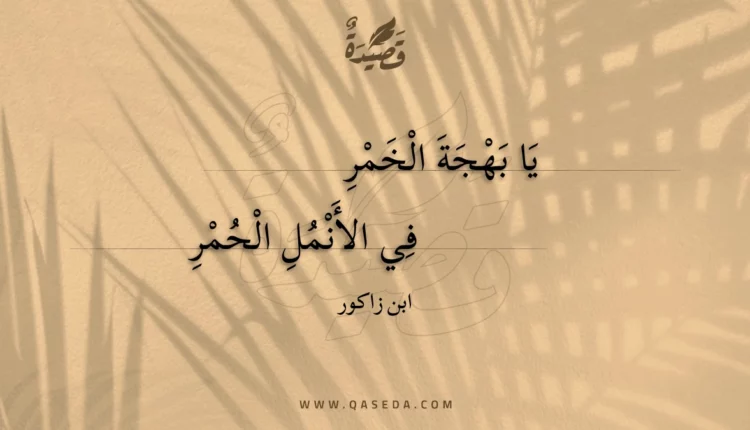 قَصِيدَةٌ
يَا بَهْجَةَ الْخَمْرِ
فِي الأَنْمُلِ الْحُمْرِ
ابن زاكور
WWW.QASEDA.COM